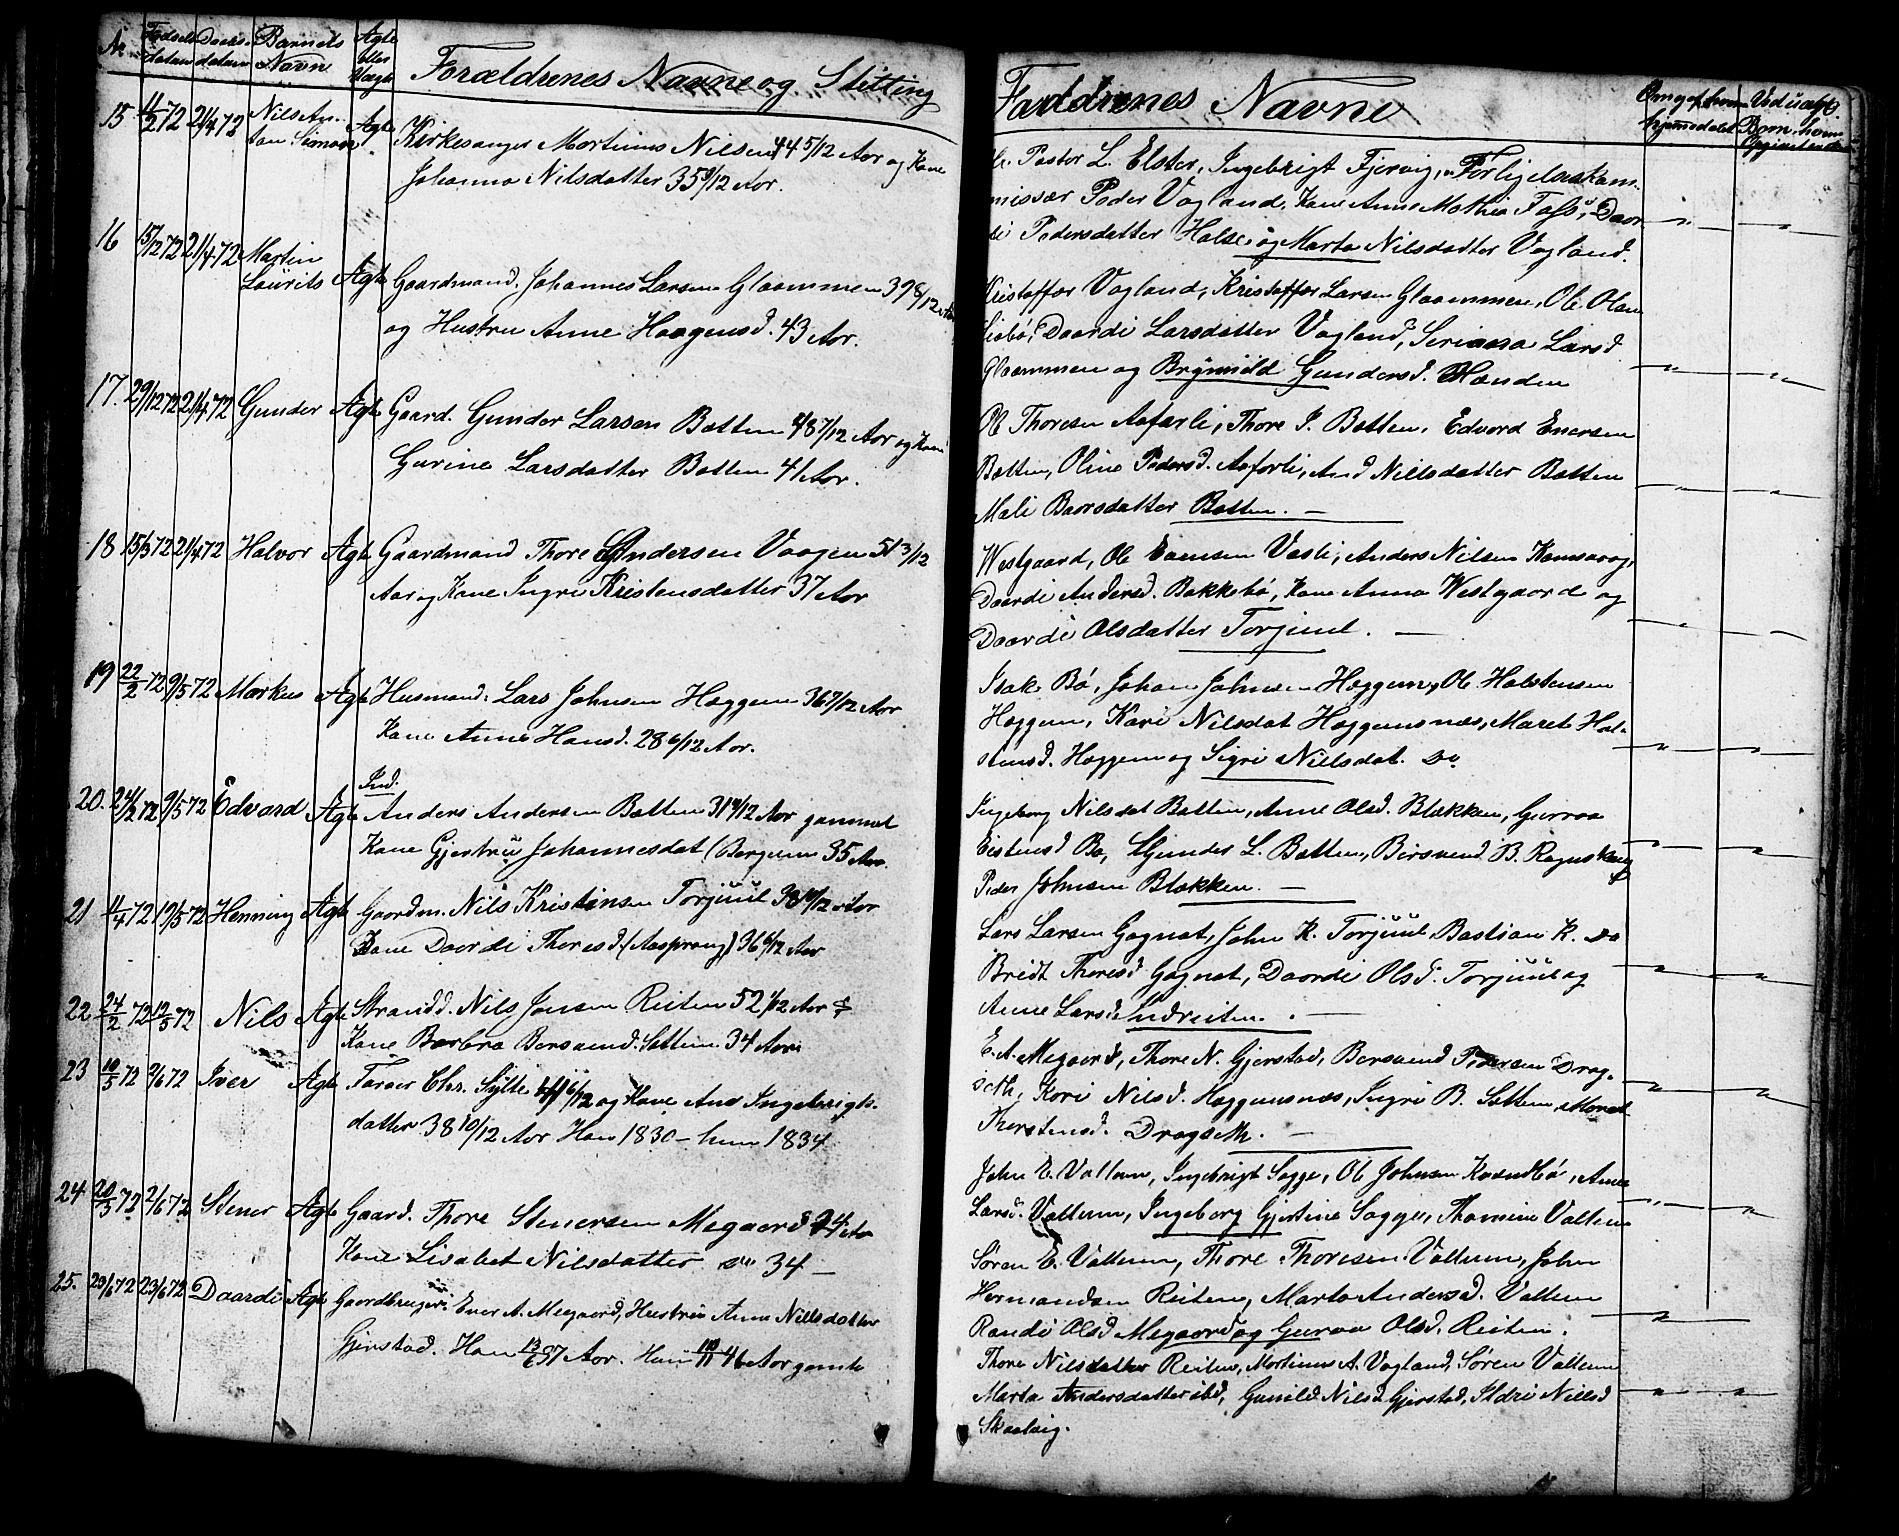 No Fødsels datum Daabs datum Barnets Navn Ægte eller Uægte Forældrenes Navne og Stilling
15 11/2 72 21/4 72 Nils An- Ægte Kirkesanger Mortinus Nilsen 44 5/12 Aar og Kone
ton Simon Johanna Nilsdatter 35 9/12 Aar.
16 15/12 72 21/4 72 Martin Ægte Gaardmand. Johannes Larsen Glaammen 39 8/12 Aar
Laurits og Hustru Anne Haagensd. 43 Aar.
17. 29/12 72 21/4 72 Gunder Ægte Gaard. Gunder Larsen Botten 48 7/12 Aar og Kone
Gurine Larsdatter Botten 41 Aar.
18 15/3 72 21/4 72 Halvor Ægte Gaardmand Thore Andersen Vaagen 51 3/12
Aar og Kone Ingri Kristensdatter 37 Aar
19 22/2 72 9/5 72 Markus Ægte Husmand. Lars Johnsen Hoggem 36 7/12 Aar
Kone Anne Hansd. 28 6/12 Aar.
Ind.
20. 24/2 72 9/5 72 Edvard Ægte Anders Andersen Botten 31 9/12 Aar gammel
Kone Gjertru Johannesdat (Bergem 35 Aar.
21 11/4 72 19/5 72 Henning Ægte Gaardm. Nils Kristensen Torjuul 38 10/12 Aar
Kone Daardi Thoresd. (Aasprong) 36 6/12 Aar
22 24/2 72 12/5 72 Nils Ægte Strandd. Nils Jonsen Reiten 52 1/12 Aar &
Kone Barbra Bersvend. Settem 34 Aar
23 10/5 72 2/6 72 Iver Ægte Farver Chr. Sylte 41 6/12 og Kone Ane Ingebrigts-
datter 38 10/12 Aar Han 1830 – hun 1834
24 20/3 72 2/6 72 Stener Ægte Gaard. Thore Stenersen Megaard 24 Aar
Kone Lisabet Nilsdatter 34 –
25. 29/6 72 23/6 72 Daardi Ægte Gaardbruger Ener A. Megaard, Hustru Anne Nilsdatter
Gjerstad. Han 13/6 57 Aar. Hun 10/11 46 Aar gamle
Fadderenes Navne
Pastor L. Elster, Ingebrigt Fjervig, Forligelseskom-
missær Peder Vagland, Kone Anne Mathia Foss, Daar-
di Pedersdatter Halse og Marta Nilsdatter Vagland.
Kristoffer Vagland, Kristoffer Larsen Glaammen, Ole Olsen
Daardi Larsdatter Vagland, Larsd
Glaammen og Brynnild Gundersd. Handen
Ole Thoresen Aafarli, Thore J. Botten, Edvard Enersen
Botten, Oline Pedersd. Aafarli, And Nillsdatter Botten
Mali Baarsdatter Botten. –
Westgaard, Ole Enersen Vasli, Anders Nilsen
Daardi Andersd. Bakkebø, Kone Anna Westgaard og
Daardi Olsdatter Torjuul. –
Isak Bø, Johan Johnsen Hoggem, Ole Halstensen
Hoggem, Kari Nilsdat Hoggemsnæs, Maret Hal-
stensd. Hoggem og Sigri Nillsdat. Do
Ingeborg Nilsdat Botten, Anne Olsd. Blækken, Gurraa
Eistensd Bø, Gunder L. Botten, Bersvend B.
Peder Johnsen Blækken. –
Lars Larsen Gagnat, John K. Torjuul, Bastian K. Do
Bridt Thoresd Gagnat, Daardi Olsd. Torjuul og
Anne Larsd Indreiten. –
E. A. Megaard, Thore N. Gjerstad, Bersvend Pedersen Drag-
seth, Kari Nilsd. Hoggemsnæs, Ingri B. Settem, Maret
Thorstensd. Dragseth. –
John E. Vullum, Ingebrigt Sogge, Ole Johnsen Anne
Larsd. Vullum, Ingeborg Gjertine Sogge, Thomine Vullum
Søren E. Vullum, Thore Thoresen Vullum, John
Hermandsen Reiten, Marta Andersd. Vullum
Randi Olsd Megaard og Guraa Olsd. Reiten.
Thore Nilsdatter Reiten, Mortinus A. Vagland, Søren Vullum
Marta Andersdatter ibd, Gunild Nilsd Gjerstad, Ildri Nillsd
Skaalvig.